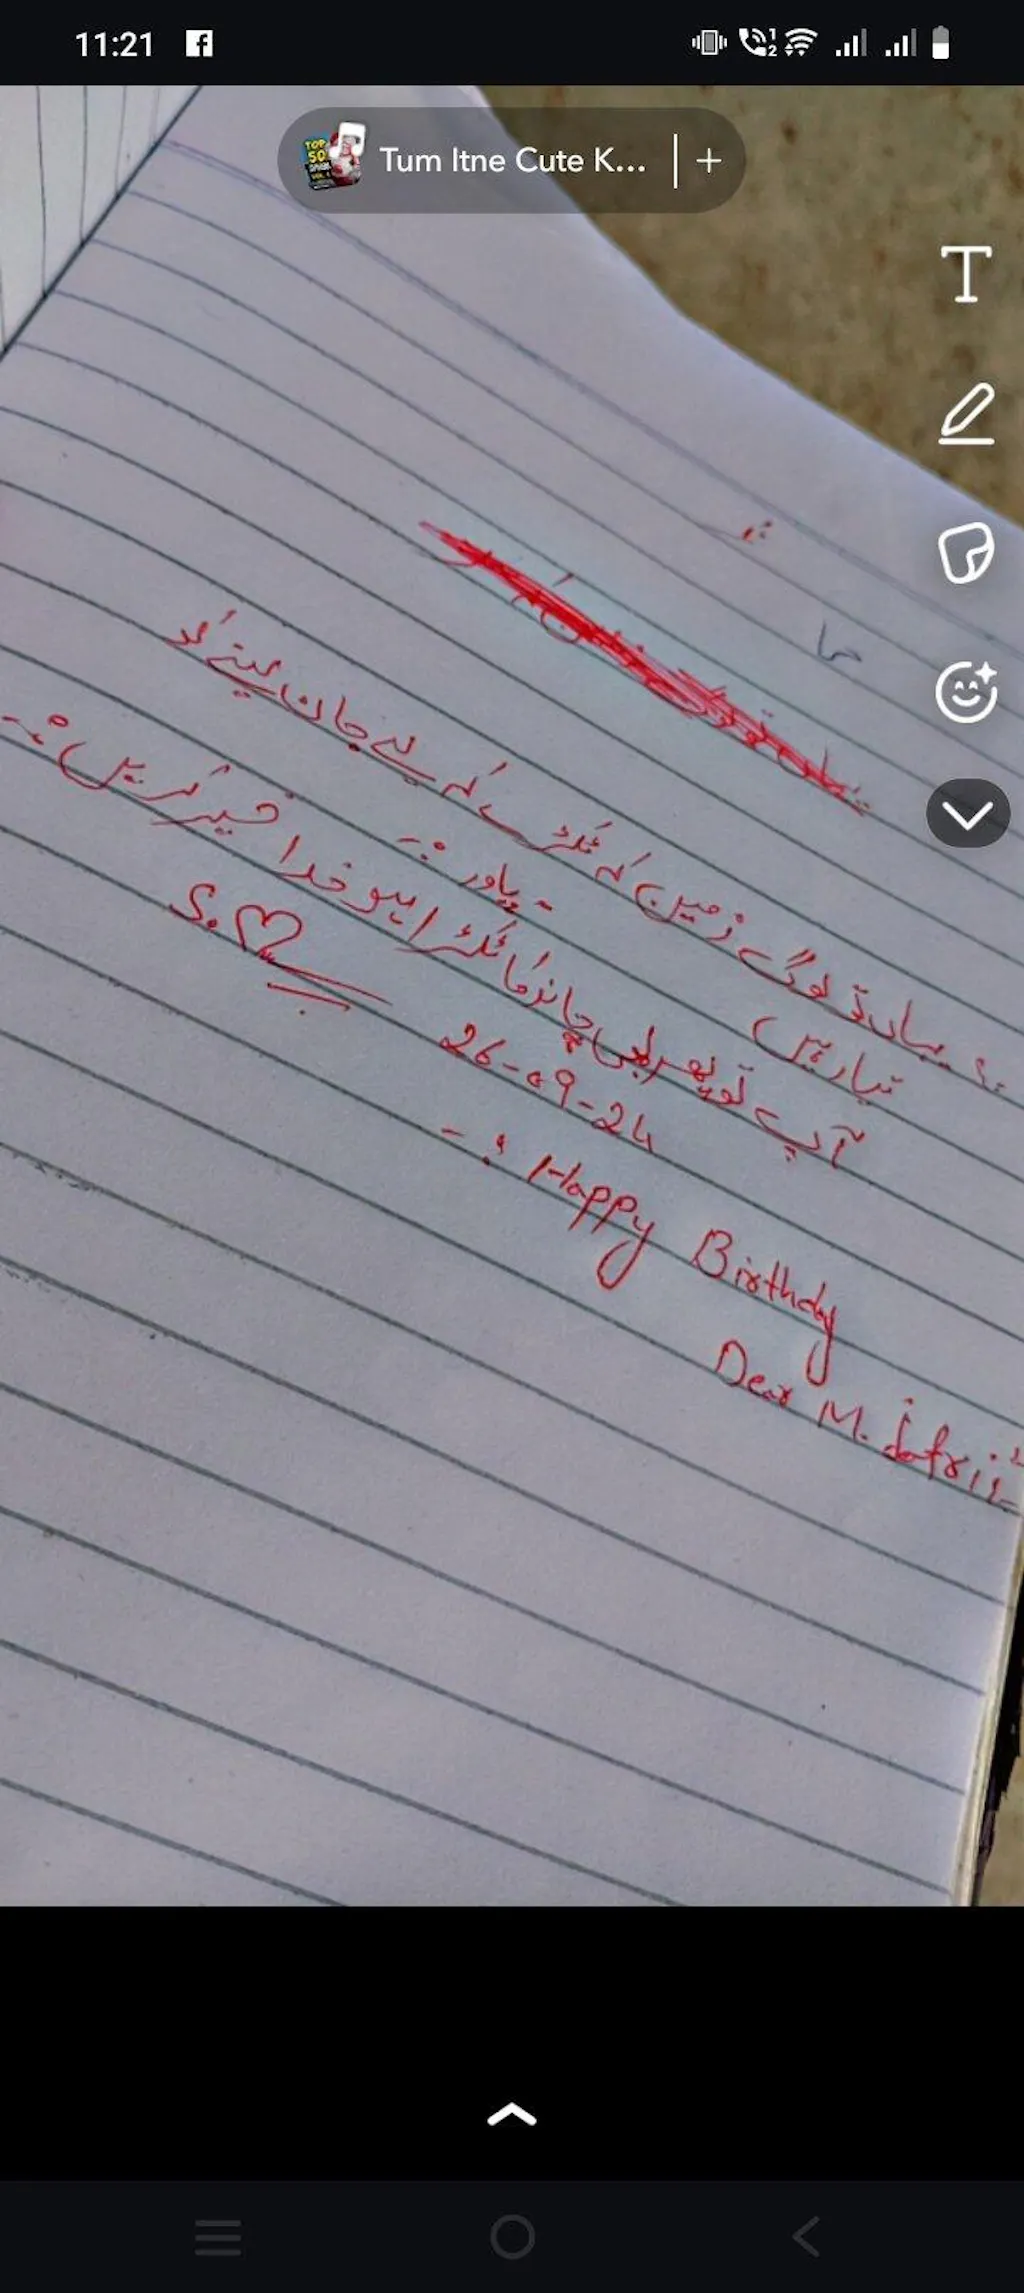 11:21
Tum Itne Cute K... | +
T
یہاں تو لوگ زمین کے ٹکڑے کے لیے جان لینے کو
تیار ہیں
یاور
آپ تو پھر بھی چاند کا ٹکڑا ہو خدا خیر کریں
S.
26-09-24
Happy Birthday
Dear M.